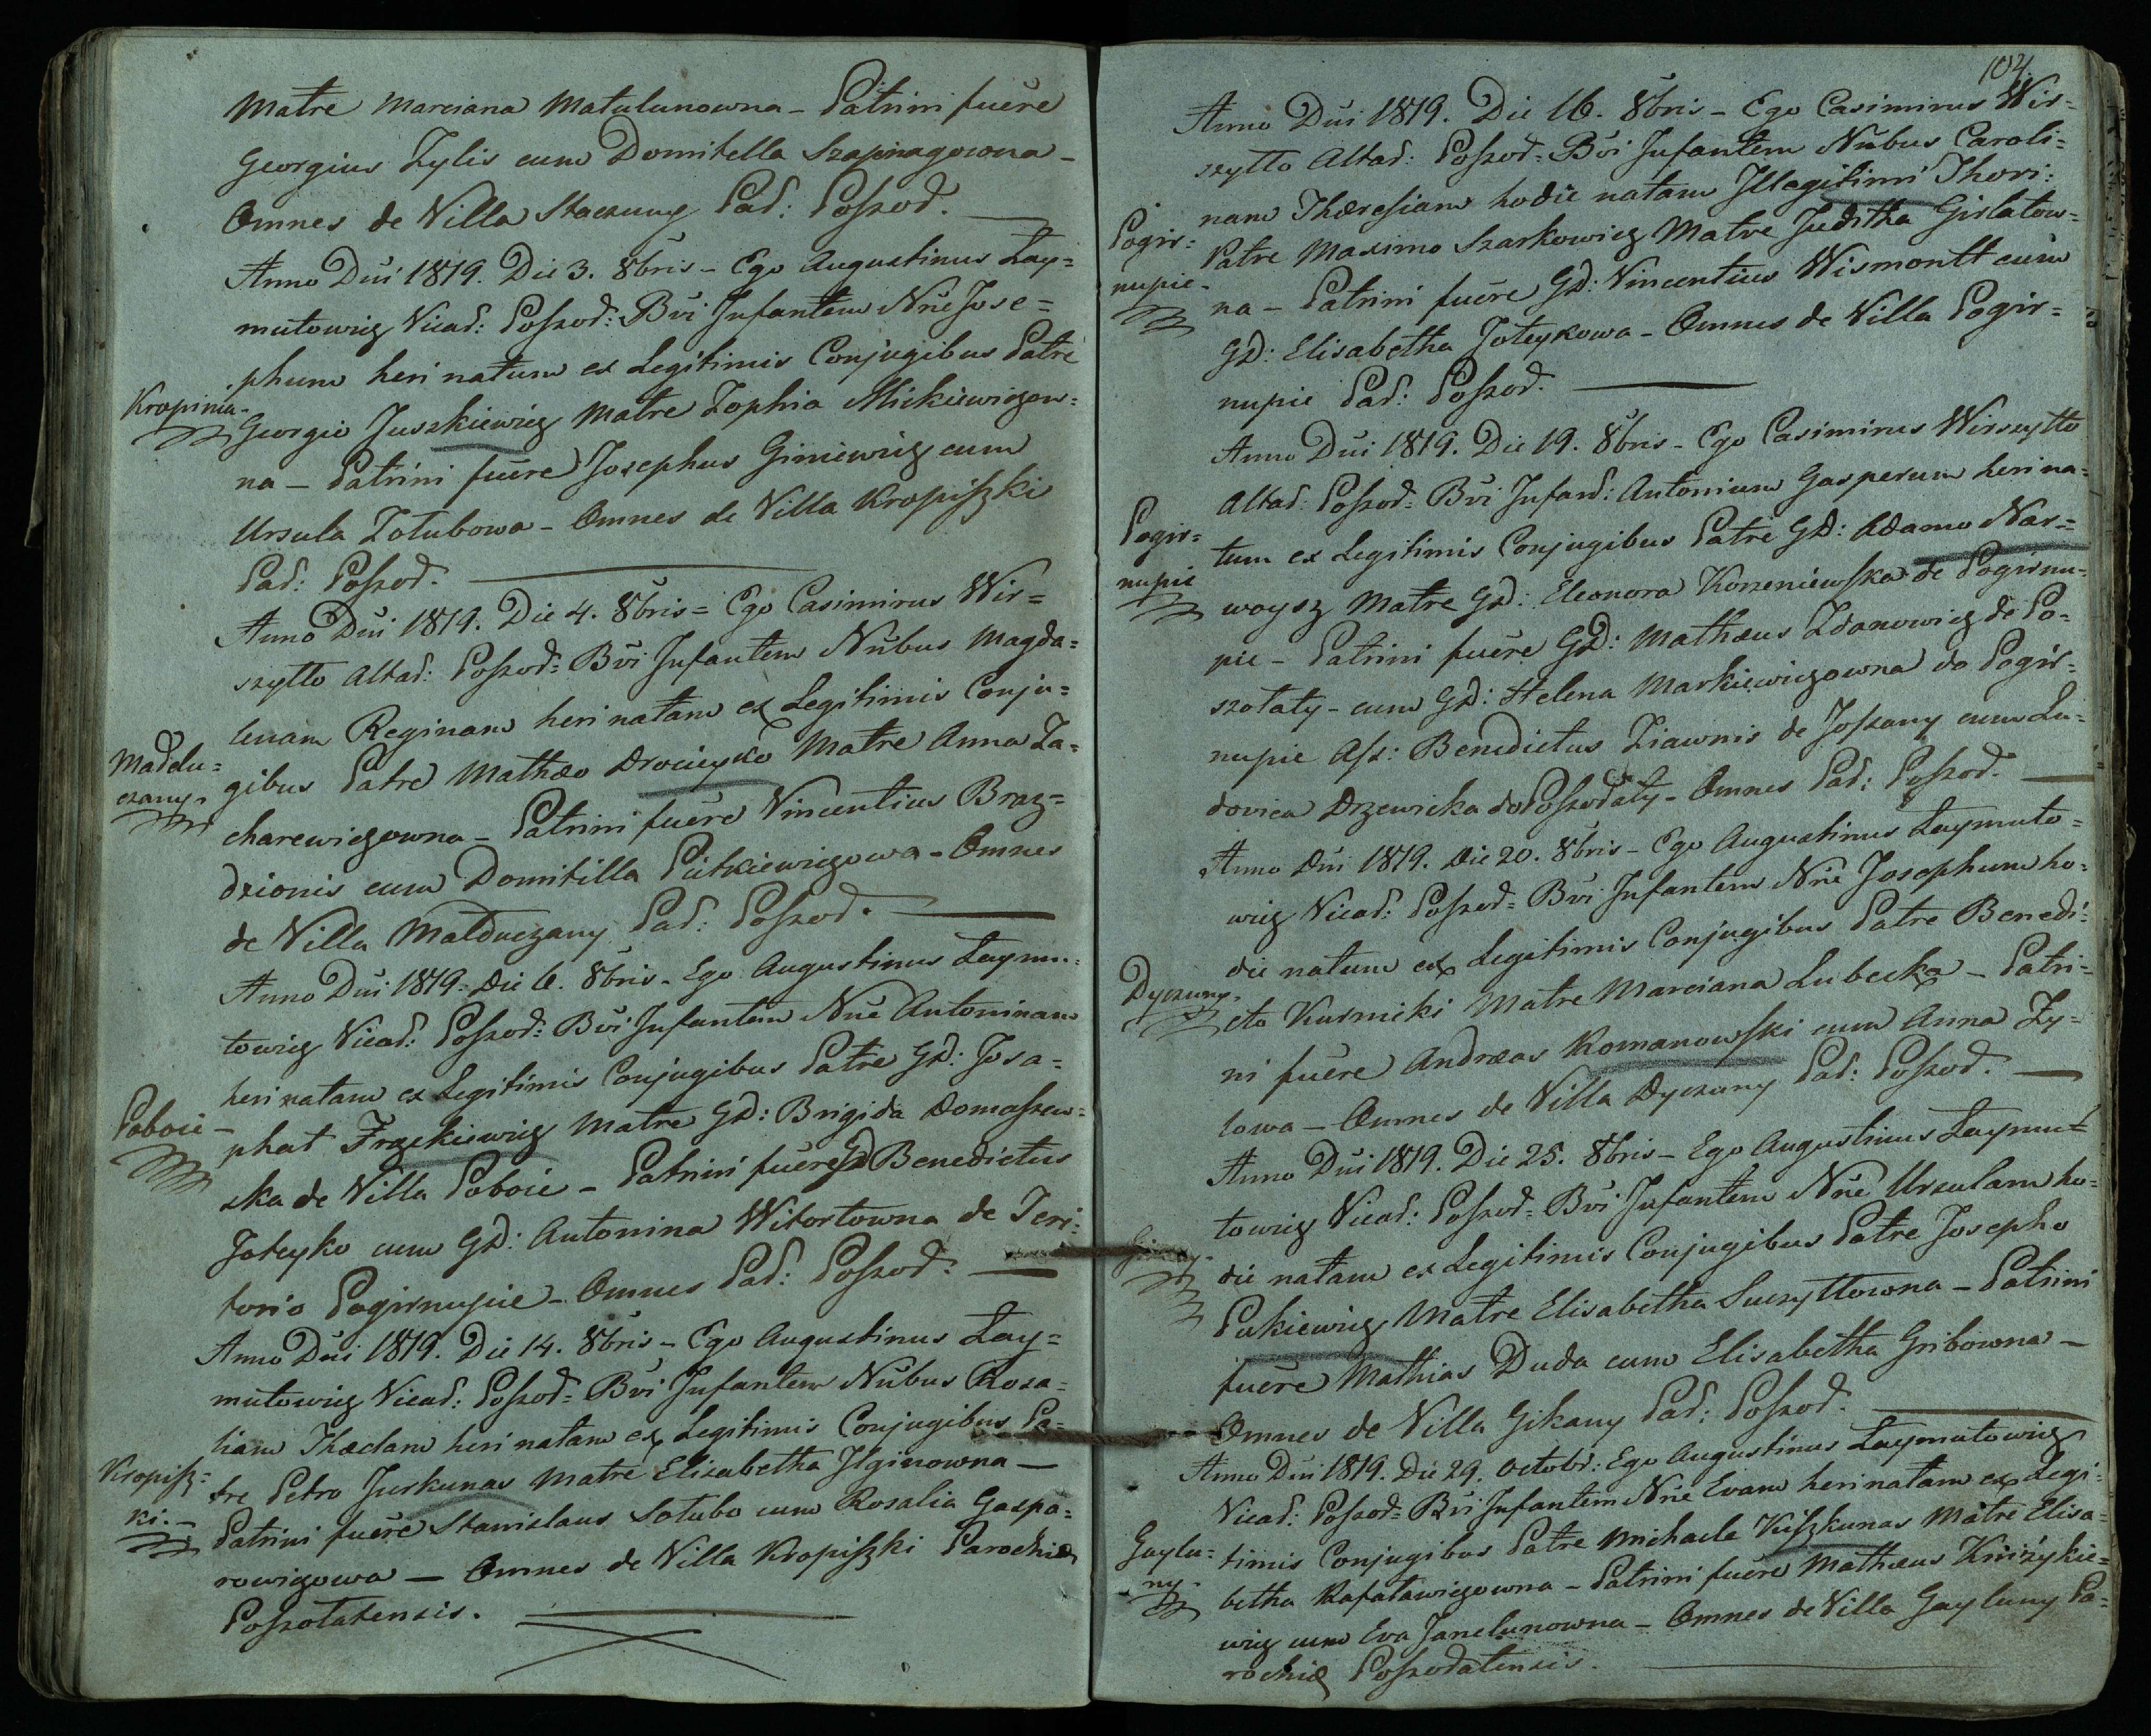 Matre Marciana Matulunowna – Patrini fuere
Georgius Zylis cum Domitella Szapnagowna –
Omnes de Villa Staczuny Par: Poszod.
Anno Dni 1819. Die 3. 8bris – Ego Augustinus Lay=
mutowicz Vicar: Poszod: Bvi Infantem Nne Jose=
phum heri natum ex Legitimis Conjugibus Patre
Kropinia.
Georgio Juszkiewicz Matre Zophia Mickiewiczow=
na – Patrini fuere Josephus Giniewicz cum
Ursula Zotubowa – Omnes de Villa Kropiszki
Par: Poszod.
Anno Dni 1819. Die 4. 8bris = Ego Casimirus Wir=
szytto Altar: Poszod: Bvi Infantem Nnbus Magda=
lenam Reginam heri natam ex Legitimis Conju=
Maddu=
czany.
gibus Patre Mathæo Drocieyko Matre Anna Za=
charewiczowna – Patrini fuere Vincentius Braz=
dzionis cum Domitilla Pietkiewiczowa – Omnes
de Villa Malduczany Par: Poszod.
Anno Dni 1819. Die 6. 8bris. Ego Augustinus Laymu=
towicz Vicar: Poszod: Bvi Infantem Nne Antoninam
heri natam ex Legitimis Conjugibus Patre GD: Josa=
Poboie –
phat Frackiewicz Matre GD: Brigida Domaszew=
ska de Villa Poboie – Patrini fuere GD Benedictus
Joteyko cum GD: Antonina Witortowna de Teri=
torio Pogirnupie – Omnes Par: Poszod:
Anno Dni 1819. Die 14. 8bris – Ego Augustinus Lay=
mutowicz Vicar: Poszod: Bvi Infantem Nnbus Rosa=
liam Thæclam heri natam ex Legitimis Conjugibus Pa=
Kropisz=
ki. –
tre Petro Jurkunas Matre Elisabetha Ilginowna –
Patrini fuere Stanislaus Sotubo cum Rosalia Gaspa=
rowiczowa – Omnes de Villa Kropiszki Parochiæ
Poszotatensis.
104.
Anno Dni 1819. Die 16. 8bris – Ego Casimirus Wir=
szytto Altar: Poszod: Bvi Infantem Nnbus Caroli=
nam Thæresiam hodie natam Illegitimi Thori:
Pogir=
nupie –
Patre Maximo Szarkowicz Matre Juditha Girlatow=
na – Patrini fuere GD: Vincentius Wismontt cum
GD: Elisabetha Joteykowa – Omnes de Villa Pogir=
nupie Par: Poszod.
Anno Dni 1819. Die 19. 8bris – Ego Casimirus Wirszytto
Altar: Poszod: Bvi Infant: Antonium Gasperum heri na=
Pogir=
nupie
tum ex Legitimis Conjugibus Patre GD: Adamo Nar=
woysz Matre GD: Eleonora Korzeniewska de Pogirnu=
pie – Patrini fuere GD: Mathæus Zdanowicz de Po=
szotaty – cum GD: Helena Markiewiczowna de Pogir=
nupie Ass: Benedictus Ziawnis de Joszany cum Lu=
dovica Drzewicka de Poszodaty – Omnes Par: Poszod.
Anno Dni 1819. Die 20. 8bris – Ego Augustinus Laymuto=
wicz Vicar: Poszod: Bvi Infantem Nne Josephum ho=
die natum ex Legitimis Conjugibus Patre Benedi=
Dyczuny.
cto Kurmicki Matre Marciana Lubecka – Patri=
ni fuere Andræas Romanowski cum Anna Zy=
lowa – Omnes de Villa Dyczuny Par: Poszod.
Anno Dni 1819. Die 25. 8bris – Ego Augustinus Laymu=
towicz Vicar: Poszod: Bvi Infantem Nne Ursulam ho=
die natam ex Legitimis Conjugibus Patre Josepho
Pukiewicz Matre Elisabetha Suszyttowna – Patrini
fuere Mathias Duda cum Elisabetha Gribowna –
Omnes de Villa Gikany Par: Poszod.
Anno Dni 1819. Die 29. Octobr: Ego Augustinus Laymutowicz
Vicar: Poszod: Bvi Infantem Nne Evam heri natam ex Legi=
Gaylu=
ny.
timis Conjugibus Patre Michaele Kuszkunas Matre Elisa=
betha Rafatowiczowna – Patrini fuere Mathæus Kiriżykie=
wicz cum Eva Janelunowna – Omnes de Villa Gayluny Pa=
rochiæ Poszodatensis.